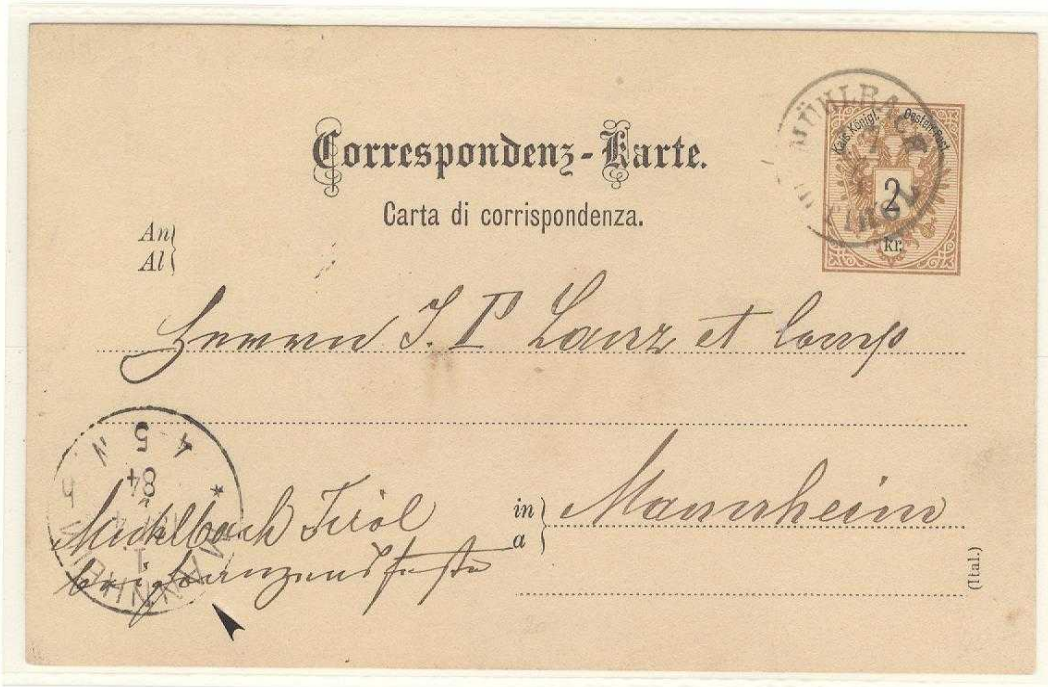 Correspondenz-Karte.
Carta di corrispondenza.
MÜHLBACH
TIROL
Kais. Königl. Oesterr. Post
2
kr.
An
Al
Herrn J. P. Lanz et Comp
in
a
Mannheim
Mühlbach Tirol
bei Franzensfeste
MANNHEIM
1
84
4 5 N
(Ital.)